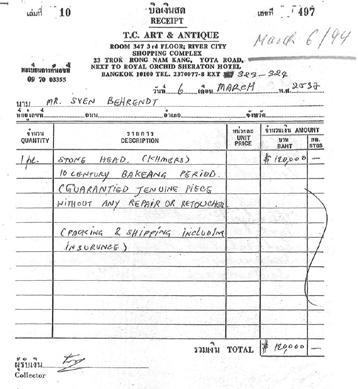 เล่มที่ 10 บิลเงินสด เลขที่ 497
RECEIPT
T.C. ART & ANTIQUE
March 6/94
ROOM 347 3rd FLOOR; RIVER CITY
SHOPPING COMPLEX
23 TROK RONG NAM KANG, YOTA ROAD,
NEXT TO ROYAL ORCHID SHERATON HOTEL
BANGKOK 10100 TEL. 2370077-8 EXT 323-324
ทะเบียนการค้าเลขที่
09 70 03355
วันที่ 6 เดือน MARCH พ.ศ. 2537
นาม MR. SVEN BEHRENDT
จำนวน รายการ หน่วยละ จำนวนเงิน AMOUNT
QUANTITY DESCRIPTION UNIT PRICE บาท BAHT STGS.
1 pc. STONE HEAD. (KHMERS) 120,000 —
10 CENTURY BAKEANG PERIOD.
(GUARANTIED JENUINE PIECE
WITHOUT ANY REPAIR OR RETOUCHED
(PACKING & SHIPPING INCLUDING
INSURUNCE)
รวมเงิน TOTAL 120,000 —
ผู้รับเงิน
Collector